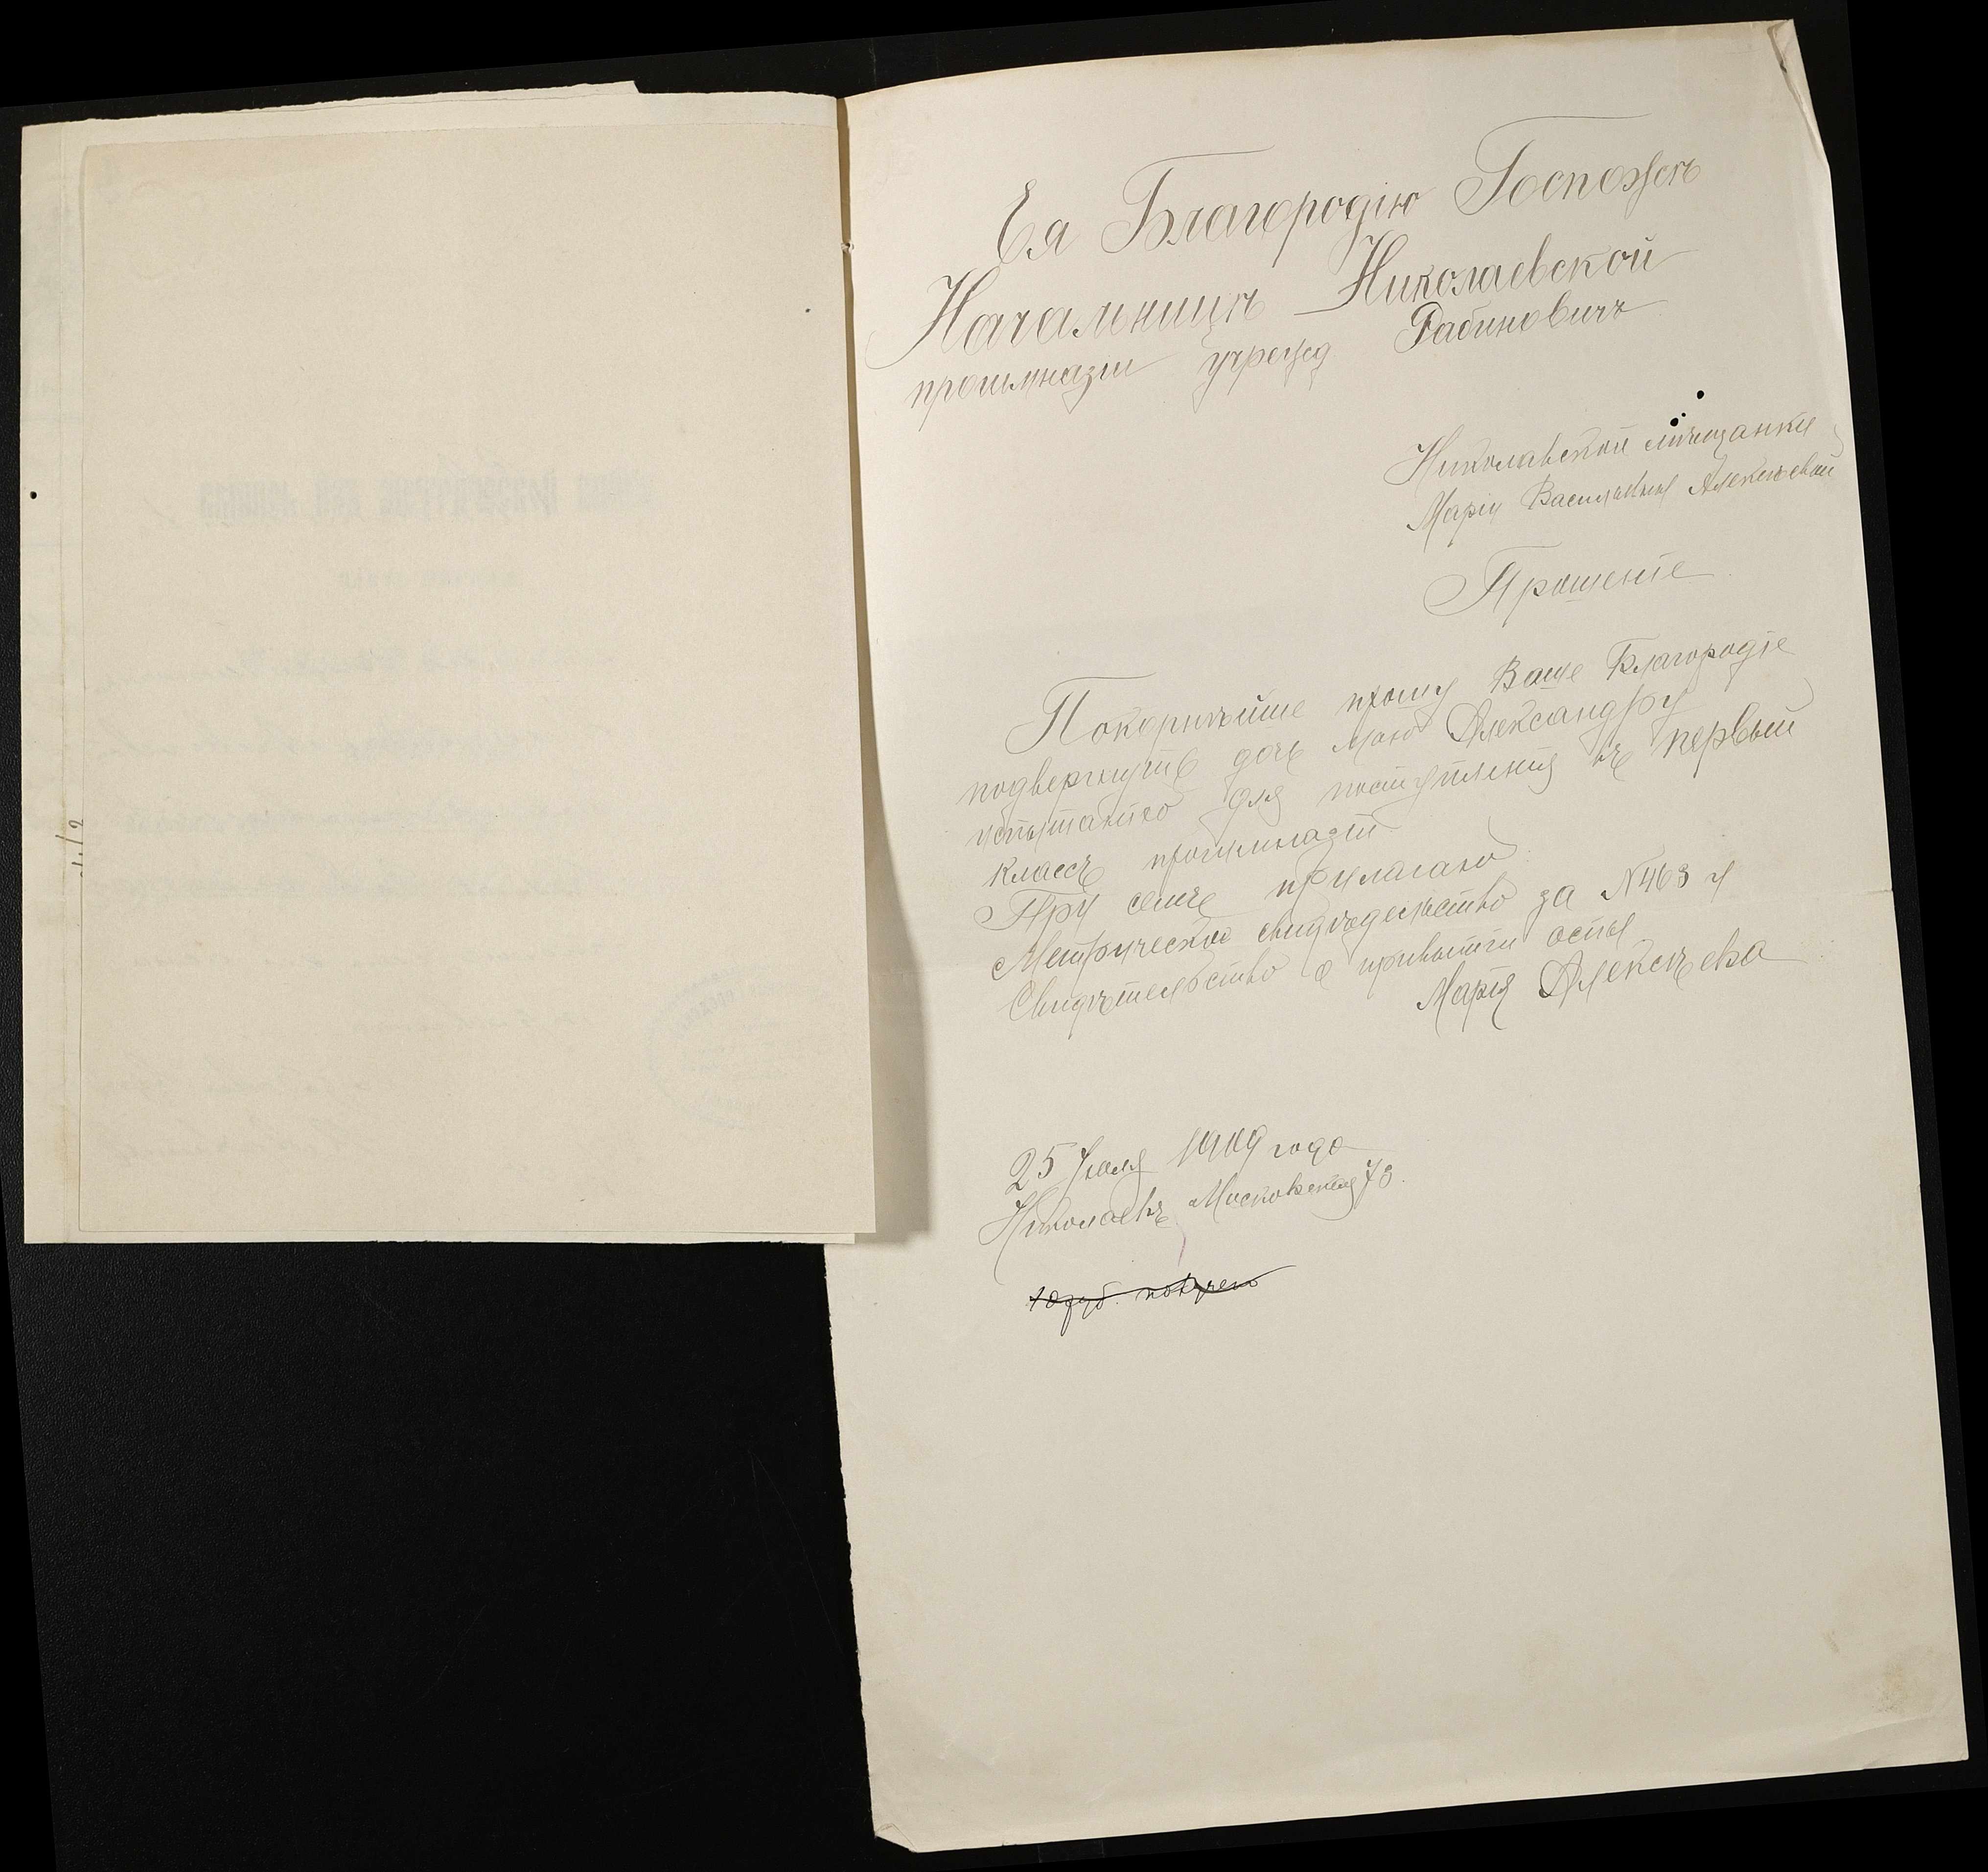 Ея Благородію Госпожѣ
Начальницѣ Николаевской
прогимназіи учрежд Рабиновичъ
Николаевской мѣщанки
Маріи Васильевны Алексѣевой
Прошеніе
Покорнѣйше прошу Ваше Благородіе
подвергнуть дочь мою Александру
испытанію для поступленія въ первый
классъ прогимназіи
При семъ прилагаю
Метрическое свидѣдельство за N 463 и
Свидѣтельство о привытіи оспы
Марія Алексѣева
25 Іюля 1909 года
Николаевъ Московская 73.
10 руб. получено